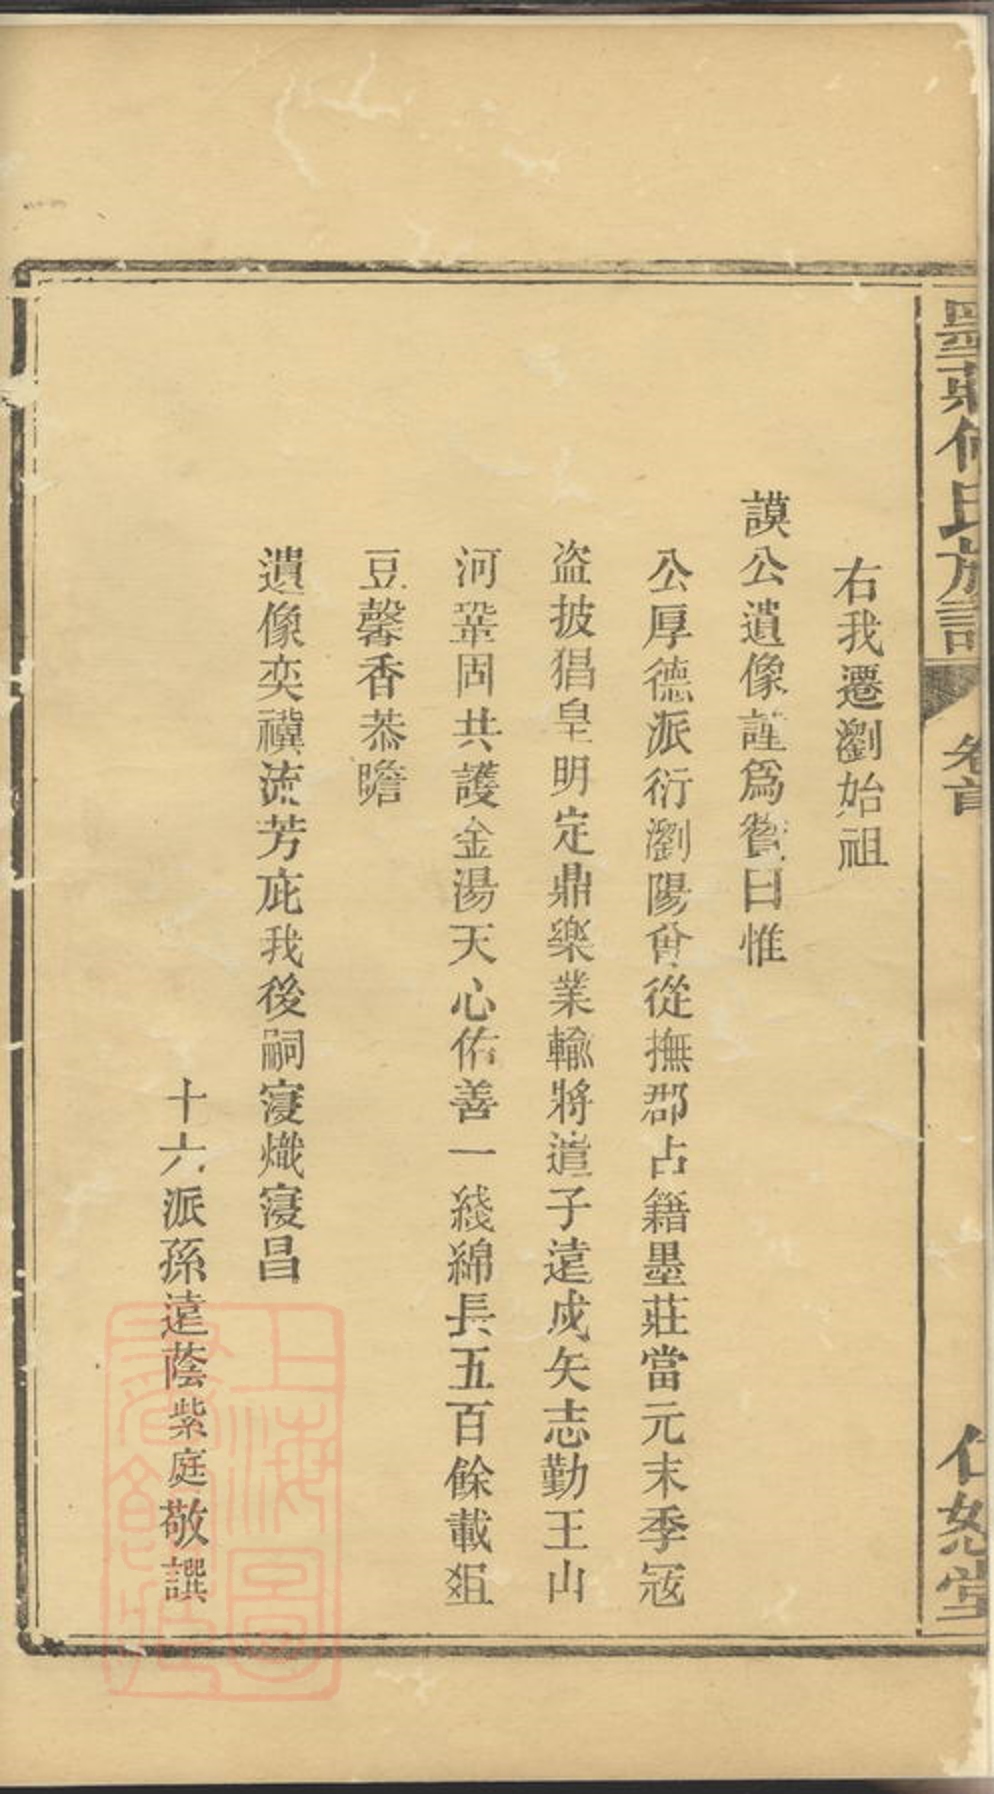 墨莊何氏族譜
卷首
仁恕堂
右我遷瀏始祖
謨公遺像謹爲贊曰惟
公厚德派衍瀏陽曾從撫郡占籍墨莊當元末季寇
盜披猖皇明定鼎樂業輸將遣子遠戍矢志勤王山
河鞏固共護金湯天心佑善一綫綿長五百餘載俎
豆馨香恭瞻
遺像奕禩流芳庇我後嗣寖熾寖昌
十六派孫遠蔭紫庭敬譔
上海圖
書館藏